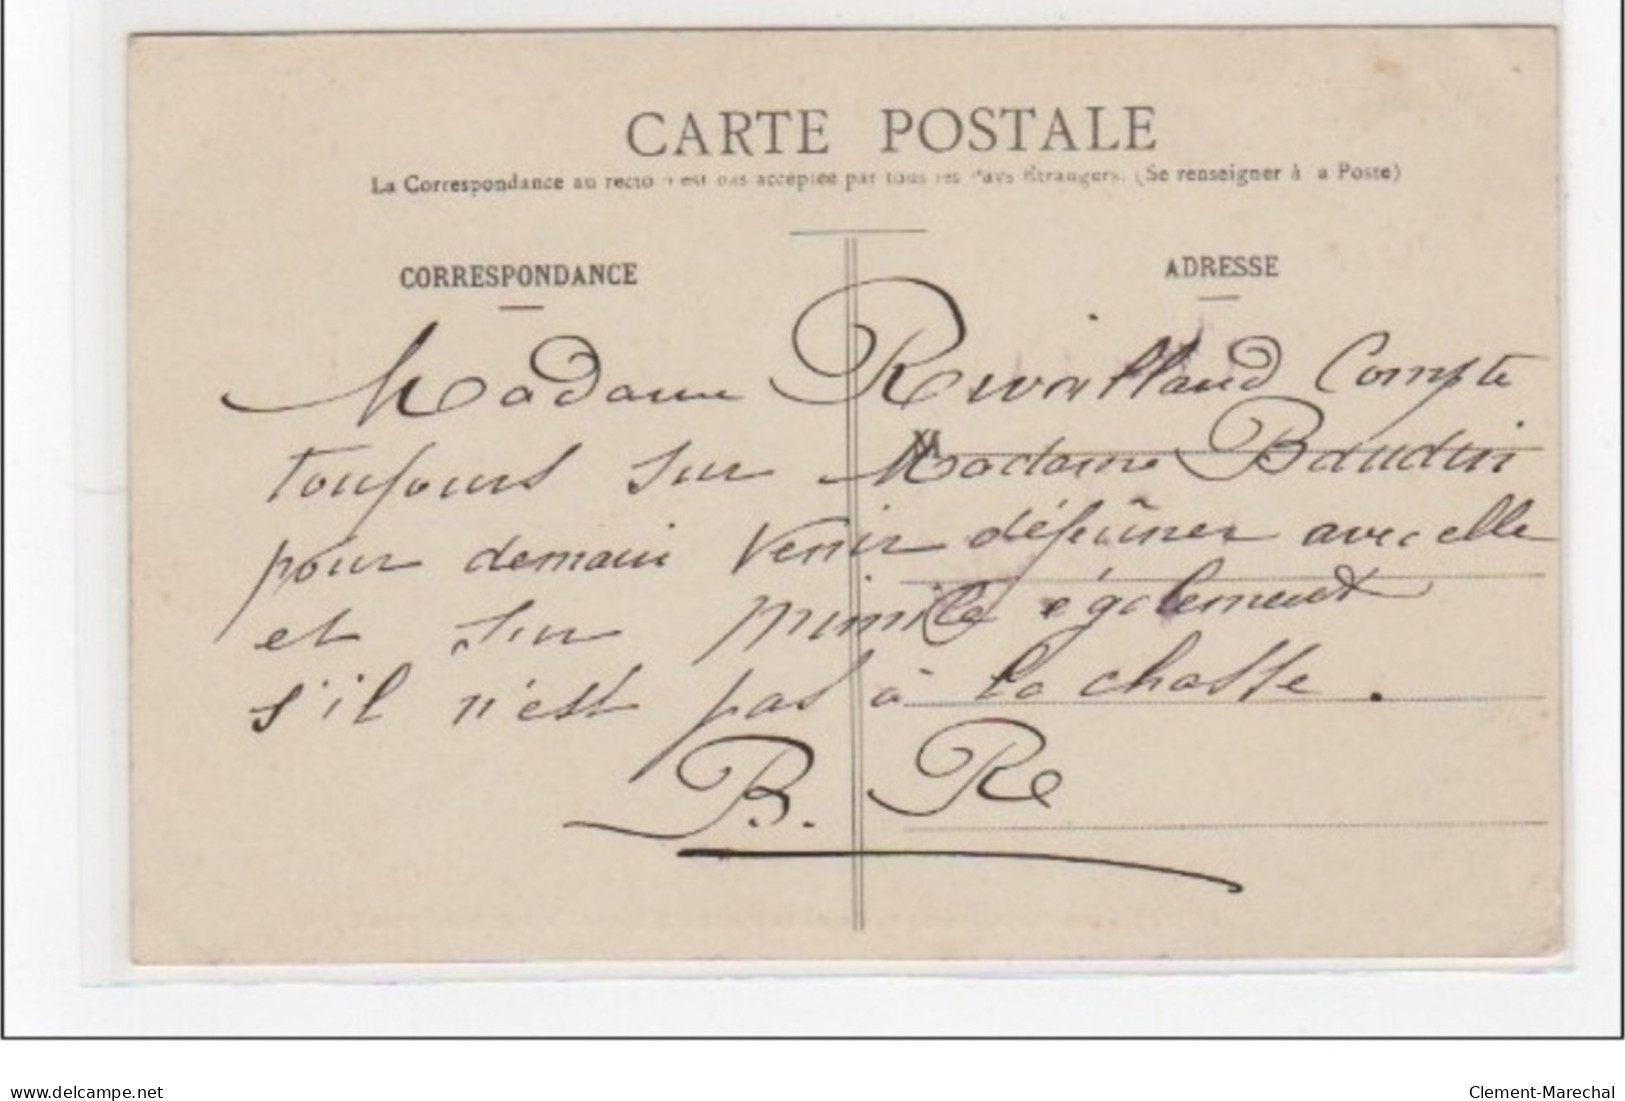 CARTE POSTALE
La Correspondance au recto n'est pas acceptée par tous les Pays Étrangers. (Se renseigner à la Poste)
CORRESPONDANCE
ADRESSE
Madame Compte
toujours sur Madame Baudin
pour demain venir déjeûner avec elle
et sur Mimile également
s'il n'est pas à la chasse.
B. Re
www.delcampe.net
Clement-Marechal